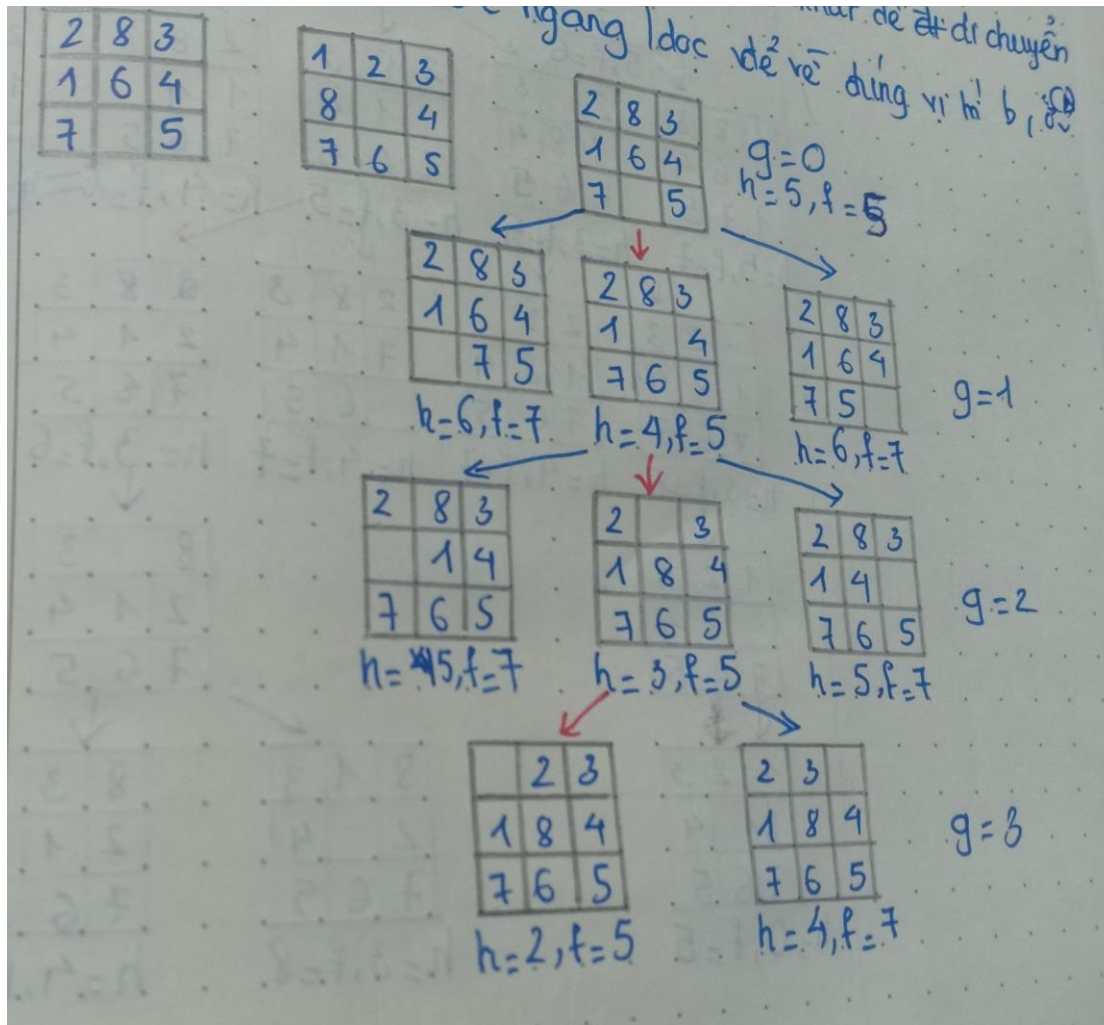 ngang / dọc để về đúng vị trí b,
để di chuyển
2 8 3
1 6 4
7 5
1 2 3
8 4
7 6 5
2 8 3
1 6 4
7 5
g=0
h=5, f=5
2 8 3
1 6 4
7 5
h=6, f=7
2 8 3
1 4
7 6 5
h=4, f=5
2 8 3
1 6 4
7 5
h=6, f=7
g=1
2 8 3
1 4
7 6 5
h=5, f=7
2 3
1 8 4
7 6 5
h=3, f=5
2 8 3
1 4
7 6 5
h=5, f=7
g=2
2 3
1 8 4
7 6 5
h=2, f=5
2 3
1 8 4
7 6 5
h=4, f=7
g=3